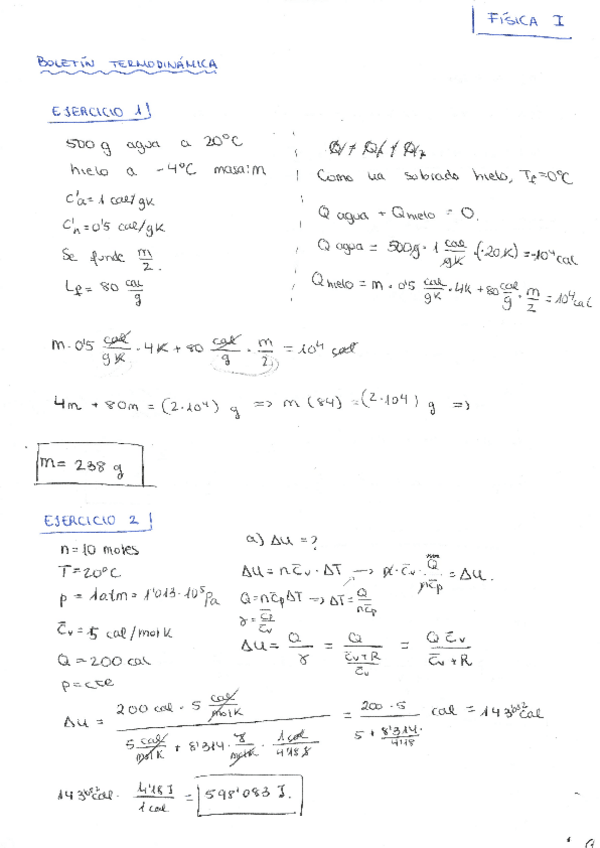 FÍSICA I
BOLETÍN TERMODINÁMICA
EJERCICIO 1)
500 g agua a 20°C
hielo a -4°C masa:m
C'a = 1 cal/gK
C'h = 0'5 cal/gK
Se funde m/2.
Lf = 80 cal/g
Como ha sobrado hielo, Tf = 0°C
Q agua + Q hielo = 0.
Q agua = 500g · 1 cal/gK · (-20K) = -10⁴ cal
Q hielo = m · 0'5 cal/gK · 4K + 80 cal/g · m/2 = 10⁴ cal
m · 0'5 cal/gK · 4K + 80 cal/g · m/2 = 10⁴ cal
4m + 80m = (2·10⁴) g => m (84) = (2·10⁴) g =>
m = 238 g
EJERCICIO 2)
n = 10 moles
T = 20°C
p = 1atm = 1'013·10⁵ Pa
C̄v = 5 cal/mol K
Q = 200 cal
p = cte
a) ΔU = ?
ΔU = n C̄v · ΔT → n · C̄v · Q/nC̄p = ΔU.
Q = nC̄pΔT → ΔT = Q/nC̄p
γ = C̄p/C̄v
ΔU = Q/γ = Q/((C̄v + R)/C̄v) = Q C̄v/(C̄v + R)
ΔU = (200 cal · 5 cal/mol K)/(5 cal/mol K + 8'314 · J/mol K · 1 cal/4'18 J) = (200 · 5)/(5 + 8'314/4'18) cal = 143 cal
143 cal · 4'18 J/1 cal = 598'083 J.